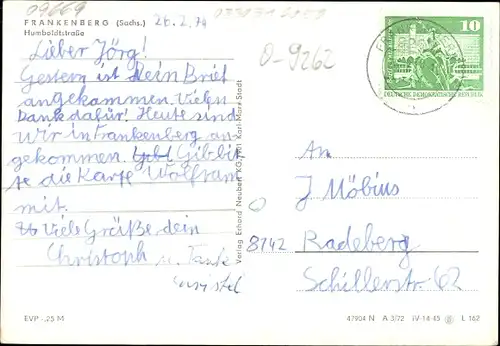 09669
FRANKENBERG (Sachs.)
26.2.74
Humboldtstraße
O-9262
10
DEUTSCHE DEMOKRATISCHE REPUBLIK
Lieber Jörg!
Gestern ist Dein Brief
angekommen. Vielen
Dank dafür! Heute sind
wir in Frankenberg an-
gekommen. Gib bit-
te die Karte Wolfram
mit.
Viele Grüße dein
Christoph u. Tante
Verlag Erhard Neubert KG, 901 Karl-Marx-Stadt
An
J Möbius
8142 Radeberg
Schillerstr. 62
EVP -,25 M
47904 N A 3/72 IV-14-45 L 162